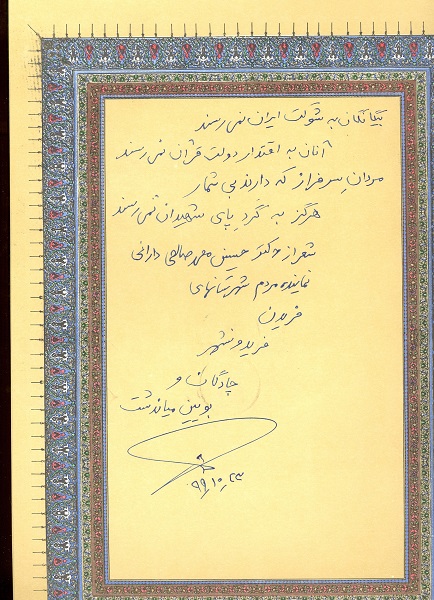 بیگانگان به شوکت ایران نمی رسند
آنان به اقتدار دولت قرآن نمی رسند
مردان سرفراز که دارند بی شمار
هرگز به گردِ پای شهیدان نمی رسند
شعر از دکتر حسین محمد صالحی دارانی
نماینده مردم شهرستانهای
فریدن
فریدونشهر
چادگان و
بویین میاندشت
۹۹/۱۰/۲۳